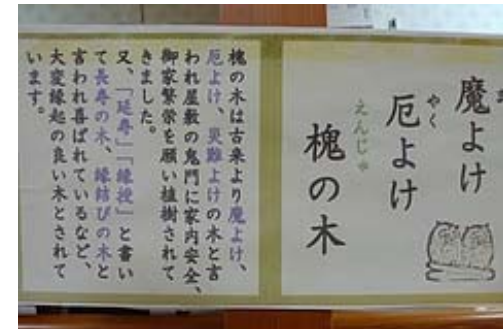 魔よけ
厄よけ
やく
槐の木
えんじゅ
槐の木は古来より魔よけ、
厄よけ、災難よけの木と言
われ屋敷の鬼門に家内安全、
御家繁栄を願い植樹されて
きました。
又、「延寿」「縁授」と書い
て長寿の木、縁結びの木と
言われ喜ばれているなど、
大変縁起の良い木とされて
います。